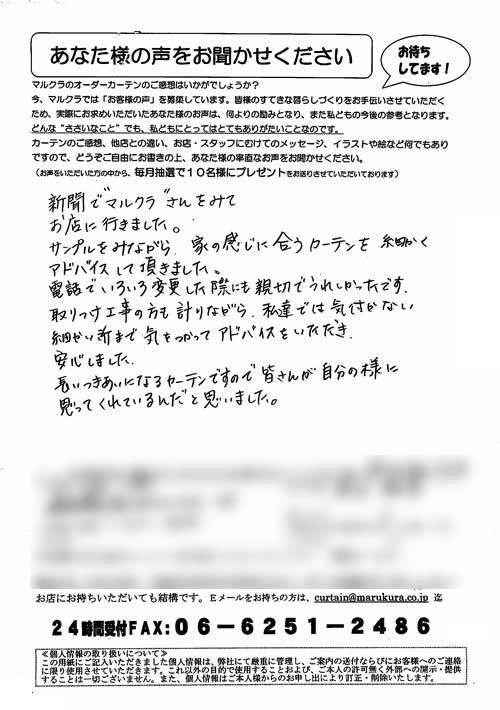 あなた様の声をお聞かせください
お待ち
してます!
マルクラのオーダーカーテンのご感想はいかがでしょうか?
今、マルクラでは「お客様の声」を募集しています。皆様のすてきな暮らしづくりをお手伝いさせていただく
ため、実際にお求めいただいたあなた様のお声は、何よりの励みとなり、また私どもの今後の参考となります。
どんな“ささいなこと”でも、私どもにとってはとてもありがたいことなのです。
カーテンのご感想、他店との違い、お店・スタッフにむけてのメッセージ、イラストや絵など何でもあり
ですので、どうぞご自由にお書きの上、あなた様の率直なお声をお聞かせください。
(お声をいただいた方の中から、毎月抽選で10名様にプレゼントをお送りさせていただいております)
新聞で“マルクラ”さんをみて
お店に行きました。
サンプルをみながら、家の感じに合うカーテンを細かく
アドバイスして頂きました。
電話でいろいろ変更した際にも親切でうれしかったです.
取りつけ工事の方も計りながら、私達では気付かない
細かい所まで気をつかってアドバイスをいただき、
安心しました.
長いつきあいになるカーテンですので皆さんが自分の様に
思ってくれているんだと思いました。
お店にお持ちいただいても結構です。Eメールをお持ちの方は、curtain@marukura.co.jp 迄
24時間受付FAX:06-6251-2486
≪個人情報の取り扱いについて≫
この用紙にご記入いただきました個人情報は、弊社にて厳重に管理し、ご案内の送付ならびにお客様へのご連絡
に限り使用させていただきます。これ以外の目的で使用することおよび、ご本人の許可無く外部への開示・提供
することは一切ございません。また、個人情報はご本人様からのお申し出により訂正・削除いたします。